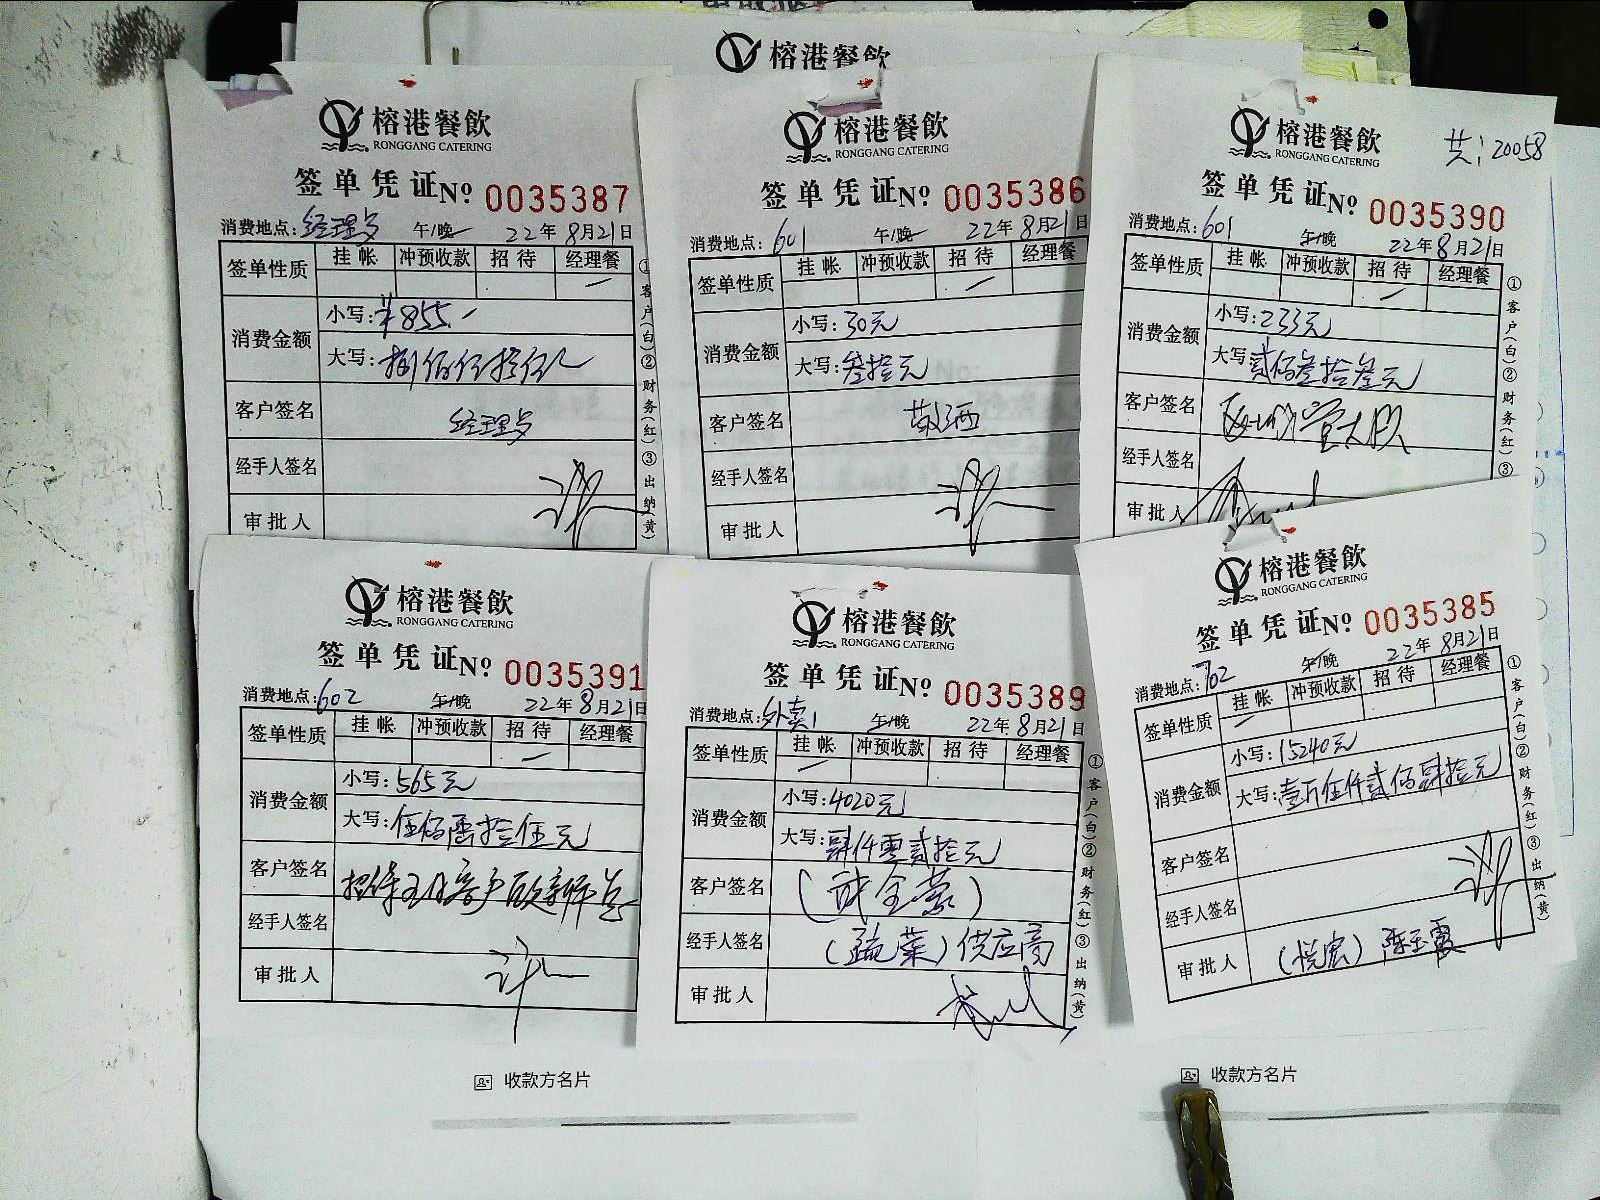 榕港餐飲
榕港餐飲
RONGGANG CATERING
签单凭证 No 0035387
消费地点:经理房 午/晚 22年8月21日
签单性质 挂帐 冲预收款 招待 经理餐
消费金额 小写:¥855.-
大写:捌佰伍拾伍元
客户签名 经理房
经手人签名
审批人
①客户(白)②财务(红)③出纳(黄)
榕港餐飲
RONGGANG CATERING
签单凭证 No 0035386
消费地点:601 午/晚 22年8月21日
签单性质 挂帐 冲预收款 招待 经理餐
消费金额 小写:30元
大写:叁拾元
客户签名 敬酒
经手人签名
审批人
共:20058
榕港餐飲
RONGGANG CATERING
签单凭证 No 0035390
消费地点:601 午/晚 22年8月21日
签单性质 挂帐 冲预收款 招待 经理餐
消费金额 小写:233元
大写:贰佰叁拾叁元
客户签名
经手人签名
审批人
①客户(白)②财务(红)③
榕港餐飲
RONGGANG CATERING
签单凭证 No 0035391
消费地点:602 午/晚 22年8月21日
签单性质 挂帐 冲预收款 招待 经理餐
消费金额 小写:565元
大写:伍佰陆拾伍元
客户签名
经手人签名
审批人
榕港餐飲
RONGGANG CATERING
签单凭证 No 0035389
消费地点:外卖1 午/晚 22年8月21日
签单性质 挂帐 冲预收款 招待 经理餐
消费金额 小写:4020元
大写:肆仟零贰拾元
客户签名
经手人签名 (蔬菜)供应商
审批人
①客户(白)②财务(红)③出纳(黄)
榕港餐飲
RONGGANG CATERING
签单凭证 No 0035385
消费地点:702 午/晚 22年8月21日
签单性质 挂帐 冲预收款 招待 经理餐
消费金额 小写:15240元
大写:壹万伍仟贰佰肆拾元
客户签名
经手人签名
审批人 (悦宏)陈玉霞
①客户(白)②财务(红)③出纳(黄)
收款方名片
收款方名片